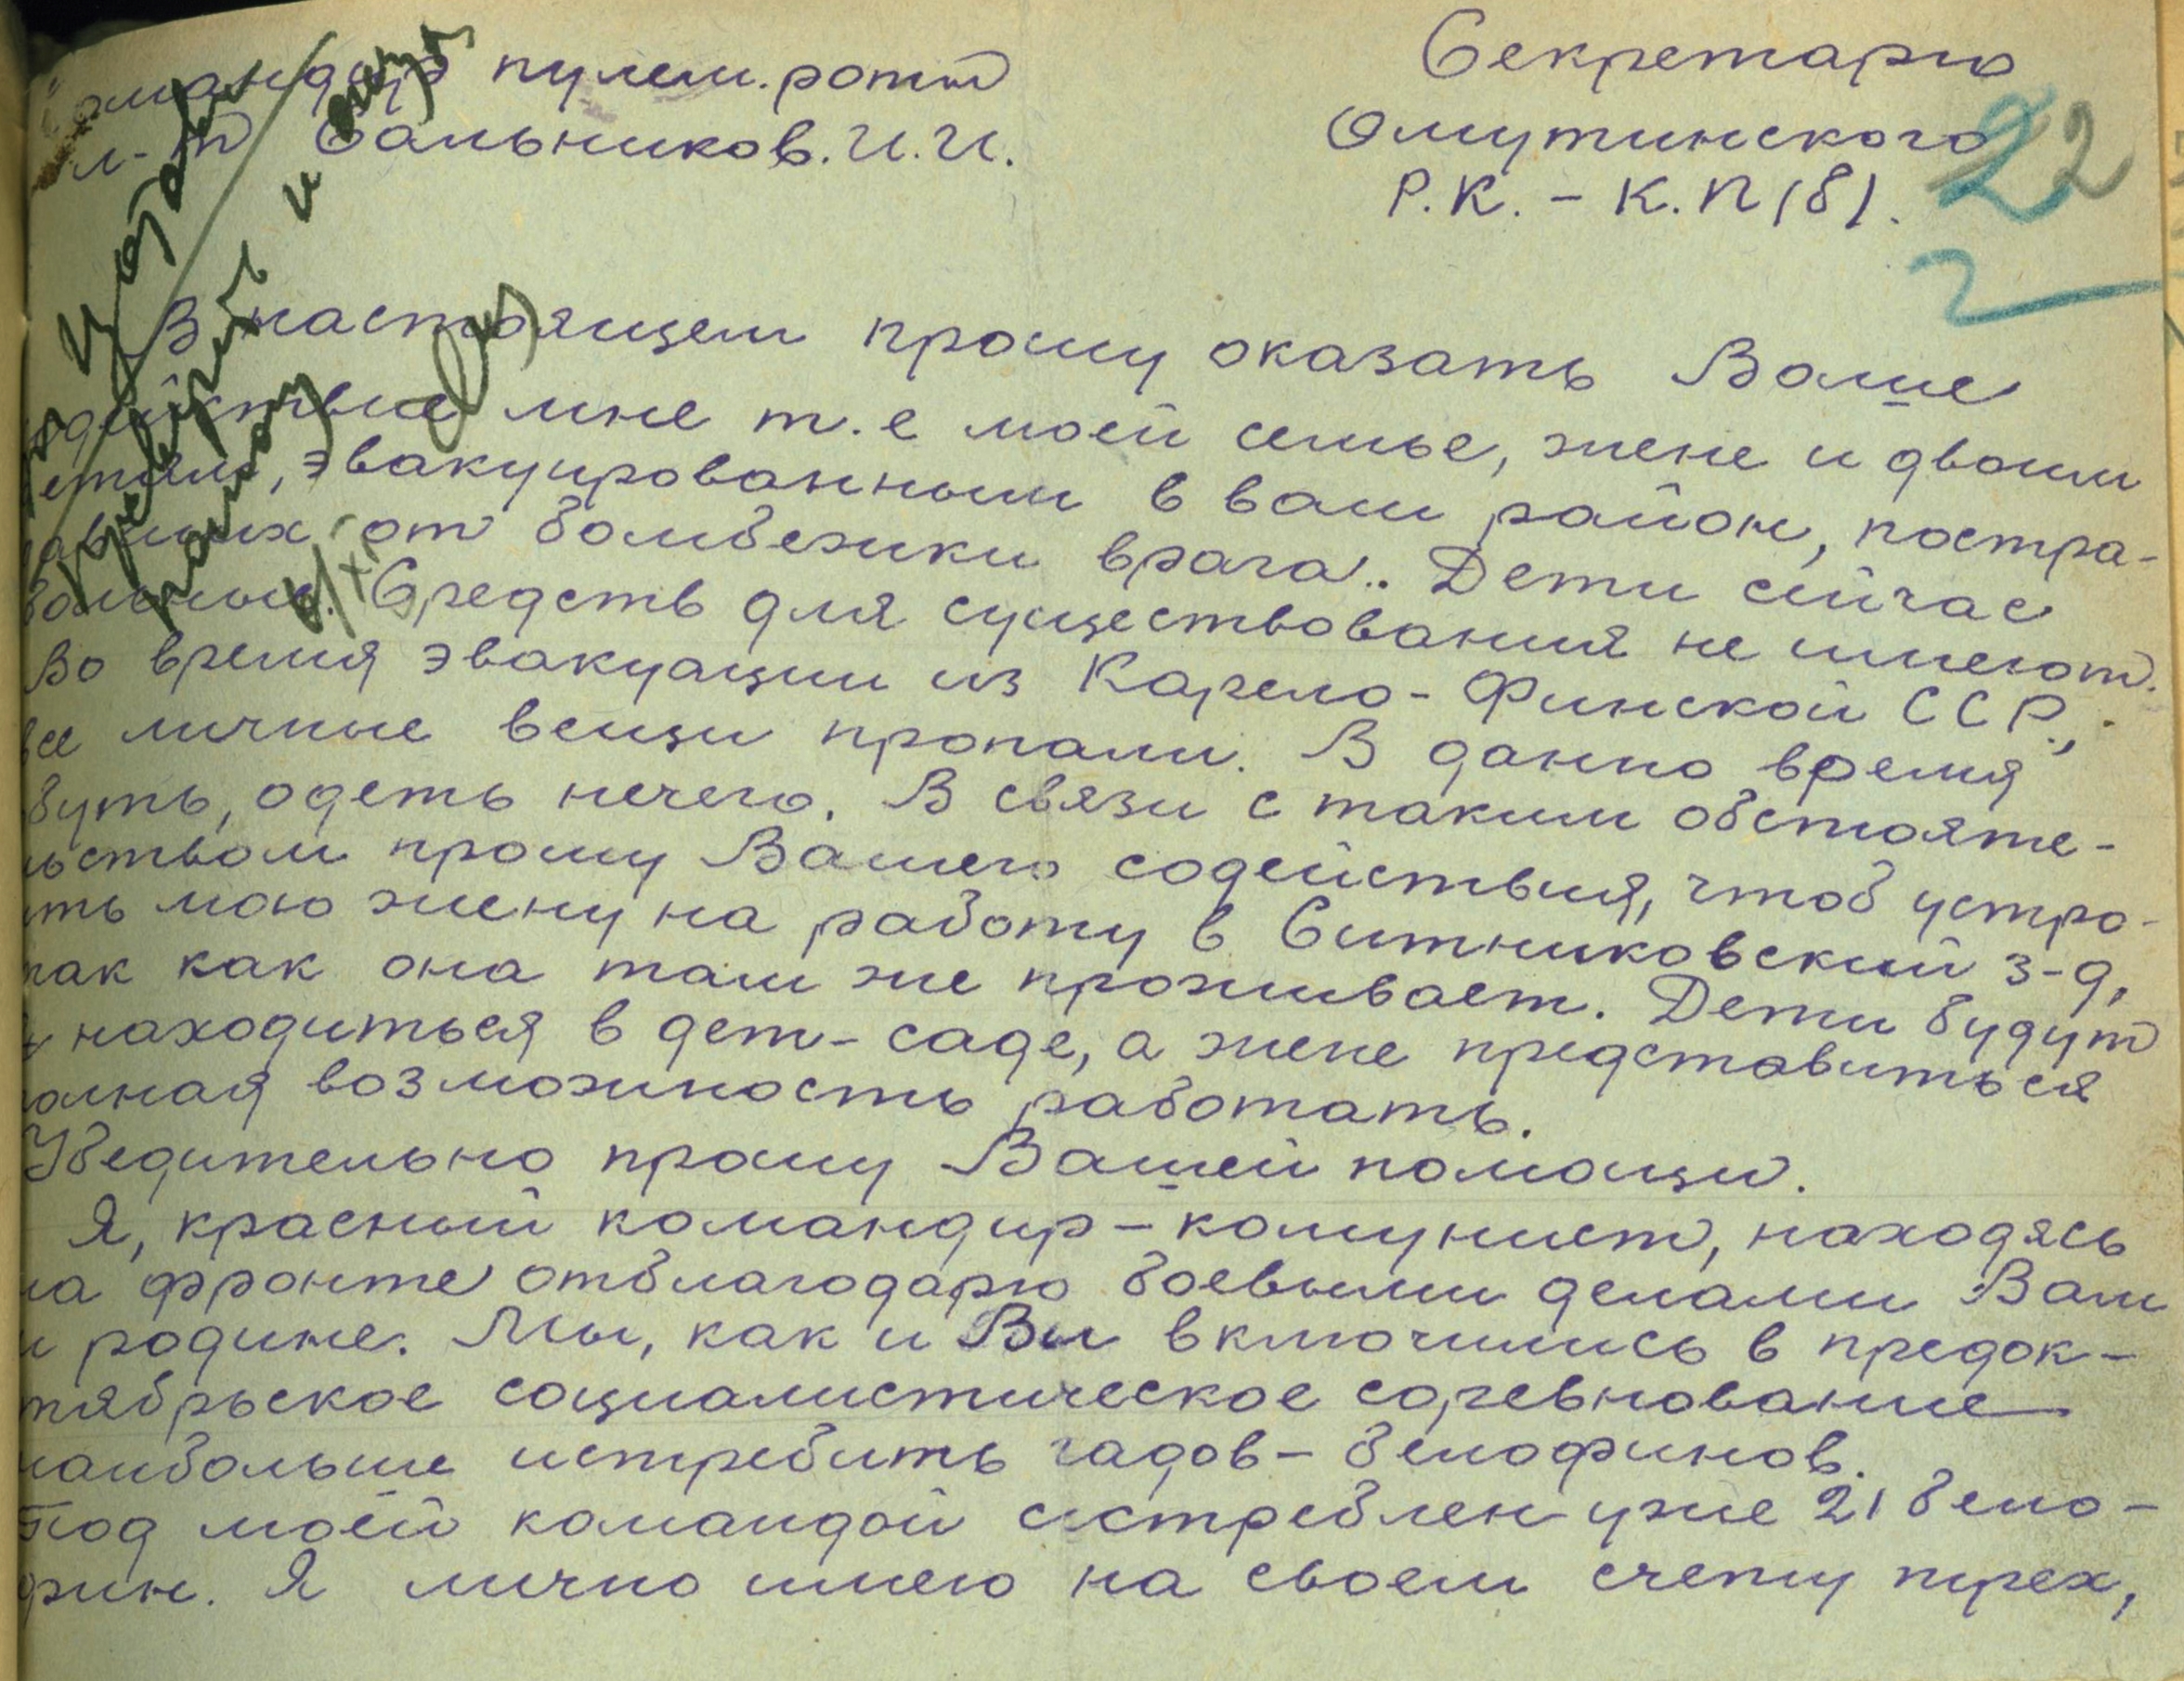 Командира пулем. роты
Секретарю
л-т Сальников. И. И.
Омутинского
22
Р.К. - К.П(б).
В настоящем прошу оказать Ваше
содействие мне т.е моей семье, жене и двоим
детям, эвакуированным в ваш район, постра-
давших от бомбежки врага.. Дети сейчас
больные. Средств для существования не имеют.
Во время эвакуации из Карело-Финской ССР.,
все личные вещи пропали. В данно время
обуть, одеть нечего. В связи с таким обстояте-
льством прошу Вашего содействия, чтоб устро-
ить мою жену на работу в Ситниковский з-д,
так как она там же проживает. Дети будут
находиться в дет-саде, а жене представиться
полная возможность работать.
Убедительно прошу Вашей помощи.
Я, красный командир-комунист, находясь
на фронте отблагодарю боевыми делами Вам
и родине. Мы, как и Вы включились в предок-
тябрьское социалистическое соревнование
наибольше истребить гадов-белофинов.
Под моей командой истреблен уже 21 бело-
фин. Я лично имею на своем счету трех,